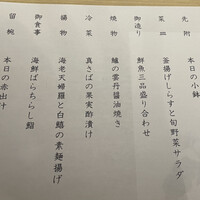 先附
本日の小鉢
菜皿
釜揚げしらすと旬野菜サラダ
御造り
鮮魚三品盛り合わせ
焼物
鱸の雲丹醤油焼き
冷菜
真さばの果実酢漬け
揚物
海老天婦羅と白鱚の素麺揚げ
御食事
海鮮ばらちらし鮨
留椀
本日の赤出汁